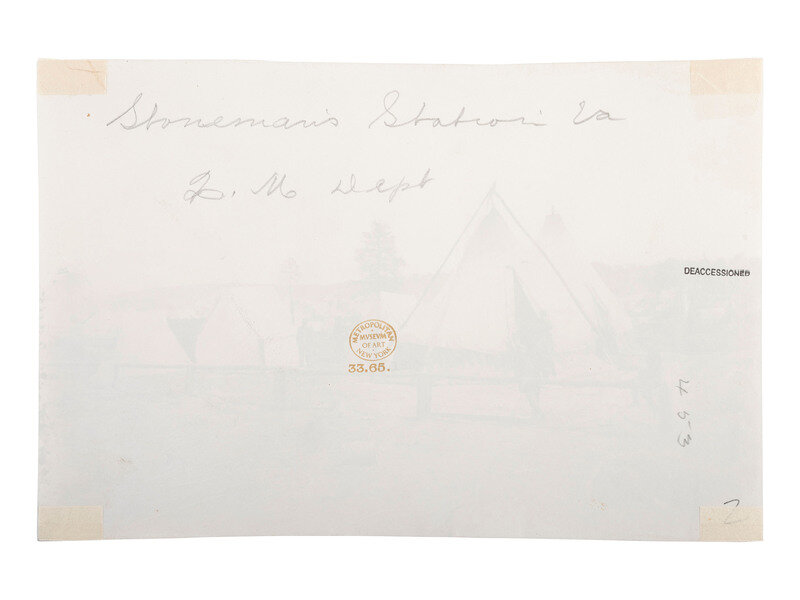 Stoneman's Station Va
Q. M Dept
DEACCESSIONED
METROPOLITAN
MVSEVM
OF ART
NEW YORK
33.65.
453
2